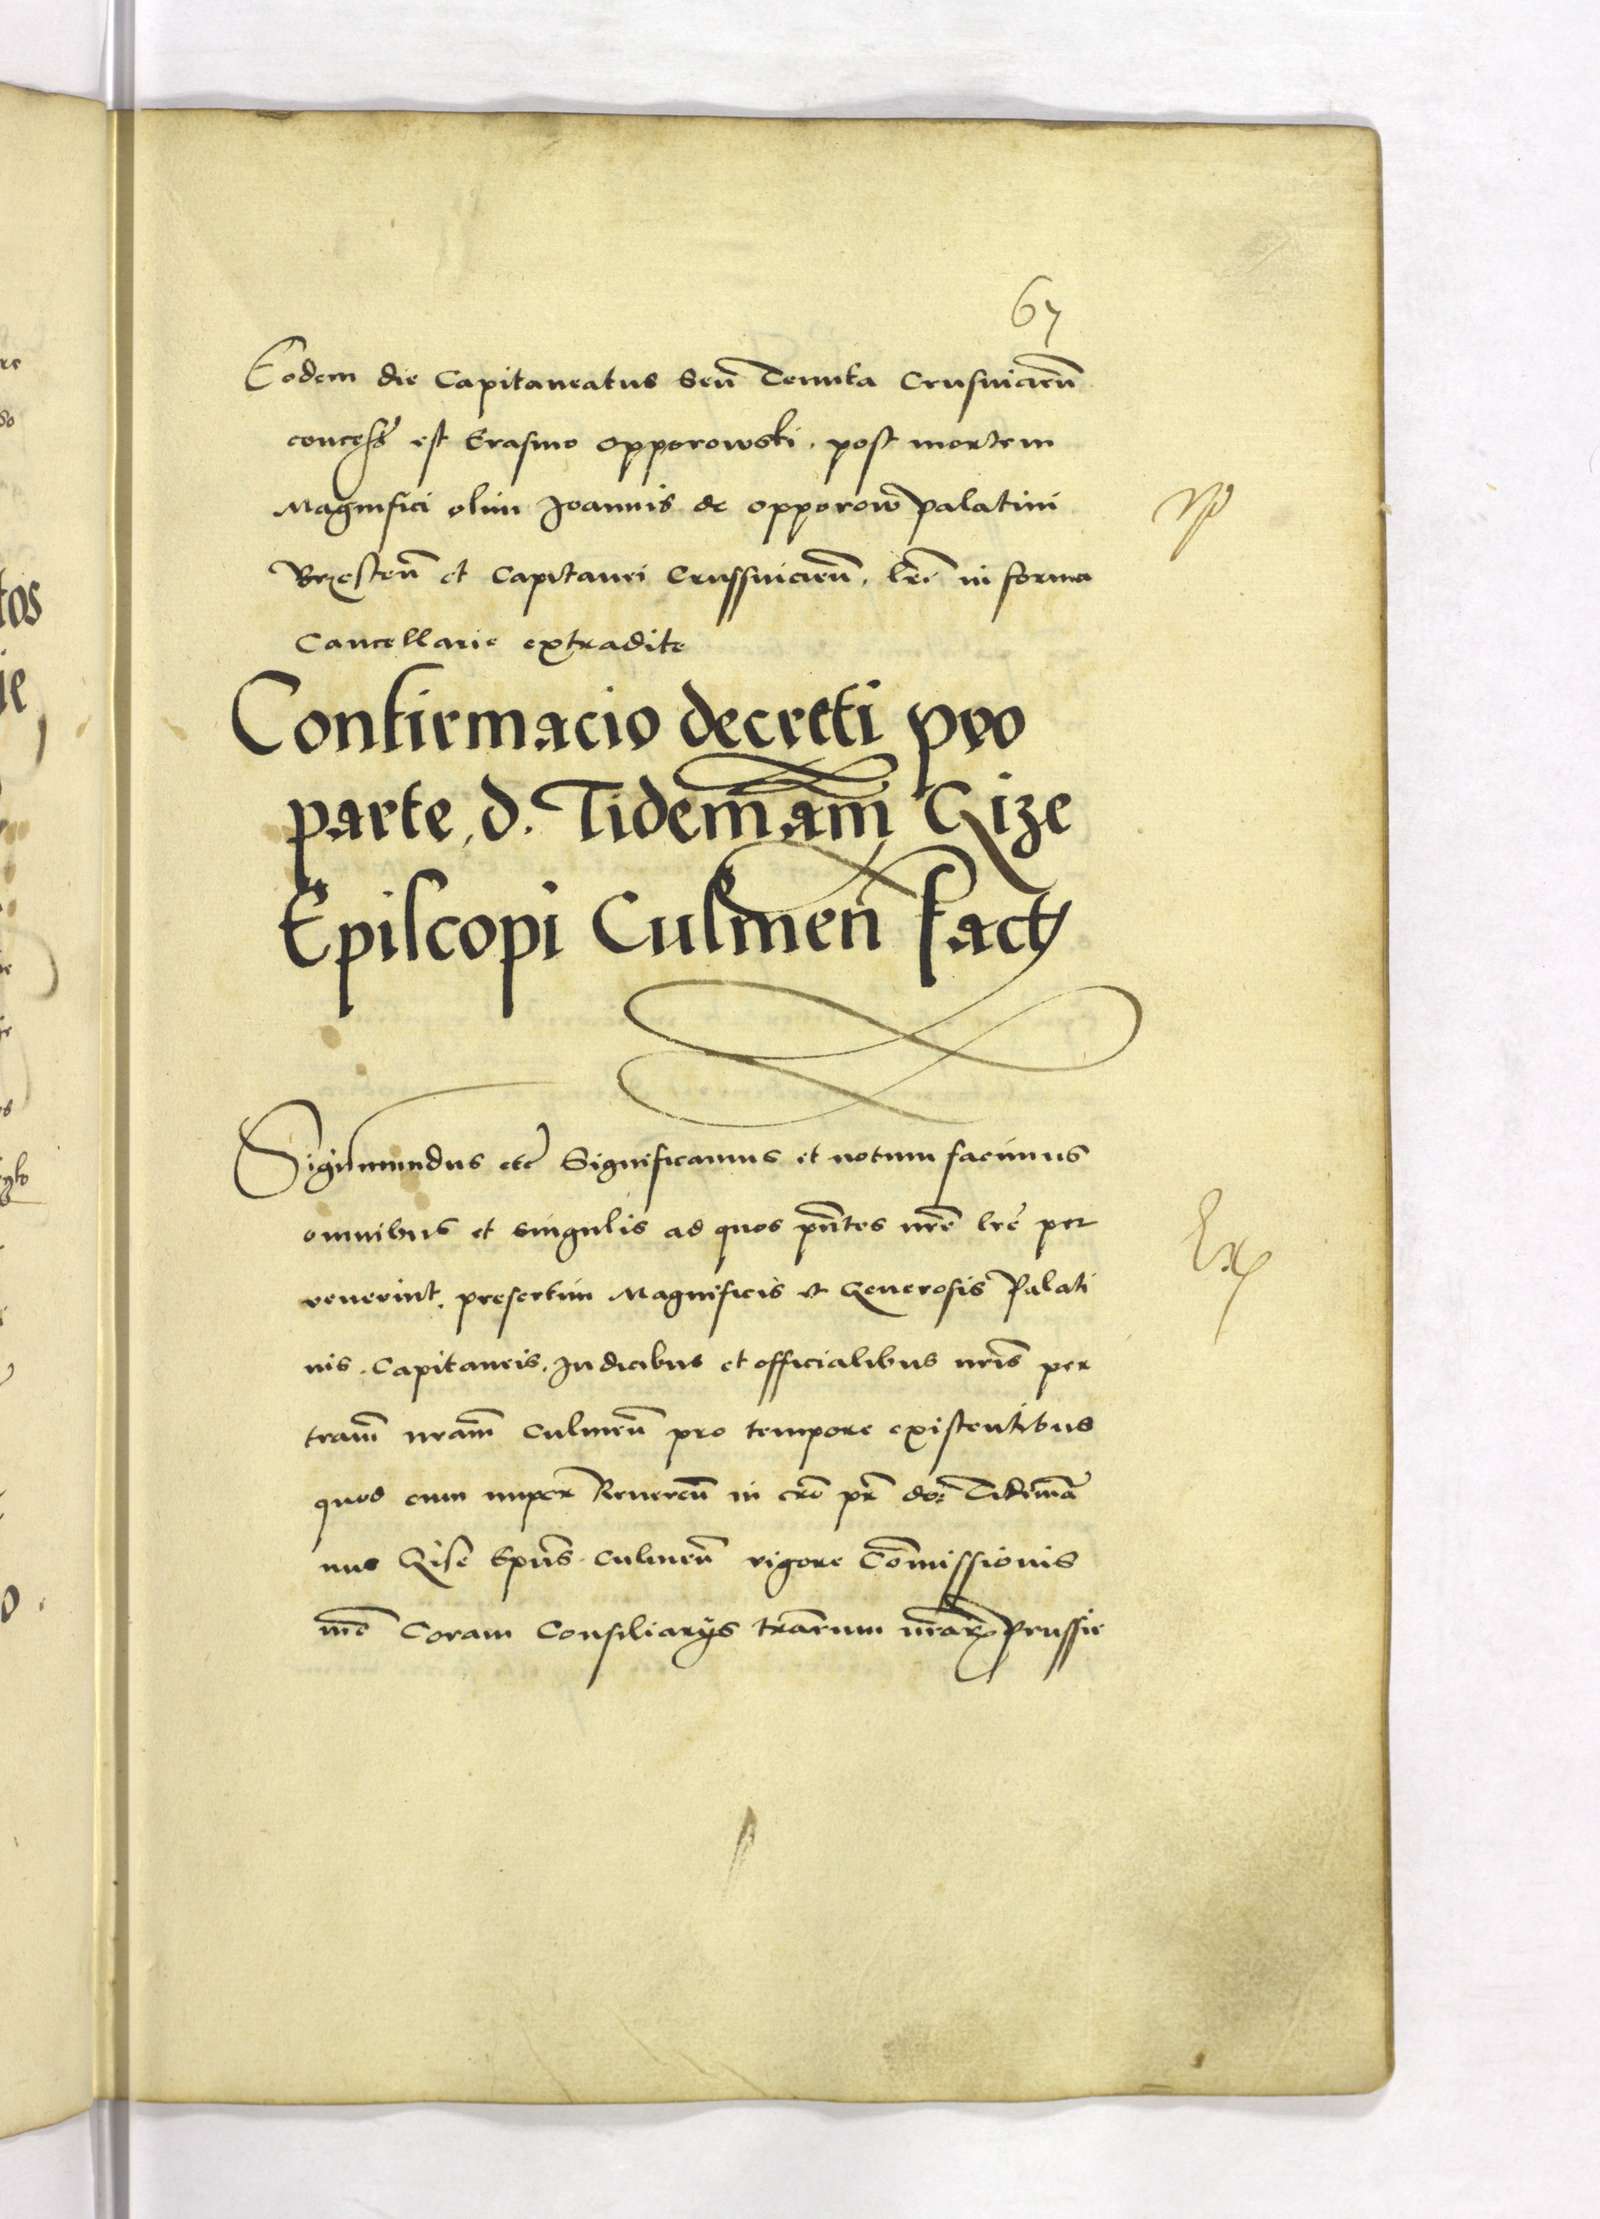 67
Eodem die Capitaneatus Seu Tenuta Crusviceñ
concess est Erasmo Opporowski. post mortem
Magnifici olim Joannis de Opporow palatini
Brzesteñ et Capitanei Crussvicieñ. lr̃e in forma
Cancellarie extradite
Confirmacio decreti pro
parte, d. Tidemam̃ Gize
Episcopi Culmeñ fact
Sigismundus etc̃ Significamus et notum facimus
omnibus et singulis ad quos pñtes nrẽ lrẽ per
venerint. presertim Magnificis et Generosis Palati
nis. Capitaneis. Judicibus et officialibus nrĩs per
tram̃ nram̃ Culmeñ pro tempore existentibus
quod cum nuper Revereñ in crõ pr̃ dor̃ Tidemã
nus Gise Epũs Culmeñ vigore Com̃issionis
nrẽ Coram Consiliarÿs trãrum nrãrꝝ Prussie
Ex